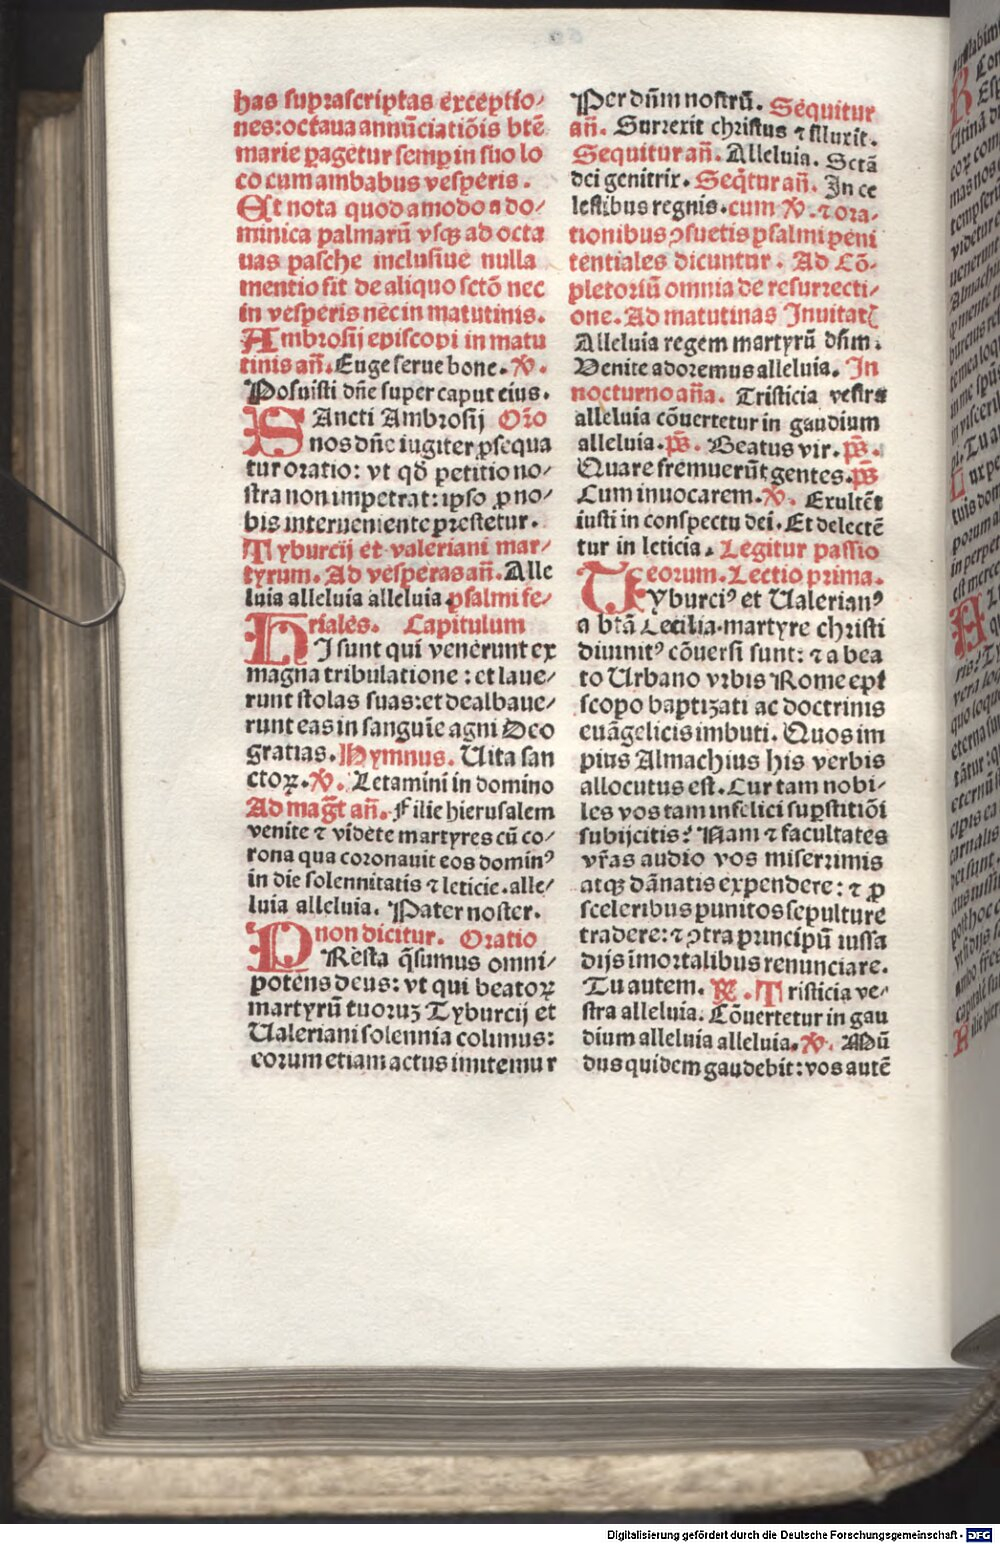 has suprascriptas exceptio/
nes: octaua annūciatiōis btē
marie ꝑagetur semꝑ in suo lo
co cum ambabus vesperis.
Et nota quod a modo a do/
minica palmarū vsqꝫ ad octa
uas pasche inclusiue nulla
mentio fit de aliquo sctō nec
in vesperis nec in matutinis.
Ambrosij episcopi in matu
tinis añ. Euge serue bone. ℣.
Posuisti dñe super caput eius.
SAncti Ambrosij Orō
nos dñe iugiter ꝓsequa
tur oratio: vt qđ petitio no/
stra non impetrat: ipso ꝓ no/
bis interueniente prestetur.
Tyburcij et valeriani mar/
tyrum. Ad vesperas añ. Alle
luia alleluia alleluia. psalmi fe/
riales. Capitulum
HIsunt qui venerunt ex
magna tribulatione: et laue/
runt stolas suas: et dealbaue/
runt eas in sanguīe agni Deo
gratias. Hymnus. Uita san
ctoꝝ. ℣. Letamini in domino
Ad mag̃t añ. Filie hierusalem
venite ⁊ videte martyres cū co/
rona qua coronauit eos dominꝰ
in die solennitatis ⁊ leticie. alle/
luia alleluia. Pater noster.
non dicitur. Oratio
PResta q̄sumus omni/
potens deus: vt qui beatoꝝ
martyrū tuoruꝫ Tyburcij et
Ualeriani solennia colimus:
eorum etiam actus imitemur
Per dūm nostrū. Sequitur
añ. Surrexit christus ⁊ illuxit.
Sequitur añ. Alleluia. Sctā
dei genitrix. Seq̄tur añ. In ce
lestibus regnis. cum ℣. ⁊ ora-
tionibus ꝯsuetis psalmi peni
tentiales dicuntur. Ad Cō-
pletoriū omnia de resurrecti/
one. Ad matutinas Inuitat
Alleluia regem martyrū dñm.
Venite adoremus alleluia. In
nocturno aña. Tristicia vestra
alleluia cōuertetur in gaudium
alleluia. p̄s. Beatus vir. p̄s.
Quare fremuerūt gentes. p̄s
Cum inuocarem. ℣. Exultēt
iusti in conspectu dei. Et delectē
tur in leticia. Legitur passio
eorum. Lectio prima.
TYburciꝰ et Ualerianꝰ
a btā Cecilia martyre christi
diuinitꝰ cōuersi sunt: ⁊ a bea
to Urbano vrbis Rome epi
scopo baptizati ac doctrinis
euāgelicis imbuti. Quos im
pius Almachius his verbis
allocutus est. Cur tam nobi/
les vos tam infelici suꝑstitiōi
subijcitis? Nam ⁊ facultates
vr̄as audio vos miserrimis
atqꝫ dānatis expendere: ⁊ ꝓ
sceleribus punitos sepulture
tradere: ⁊ ꝯtra principū iussa
dijs īmortalibus renunciare.
Tu autem. ℟. Tristicia ve/
stra alleluia. Cōuertetur in gau
dium alleluia alleluia. ℣. Mū
dus quidem gaudebit: vos autē
Digitalisierung gefördert durch die Deutsche Forschungsgemeinschaft - DFG